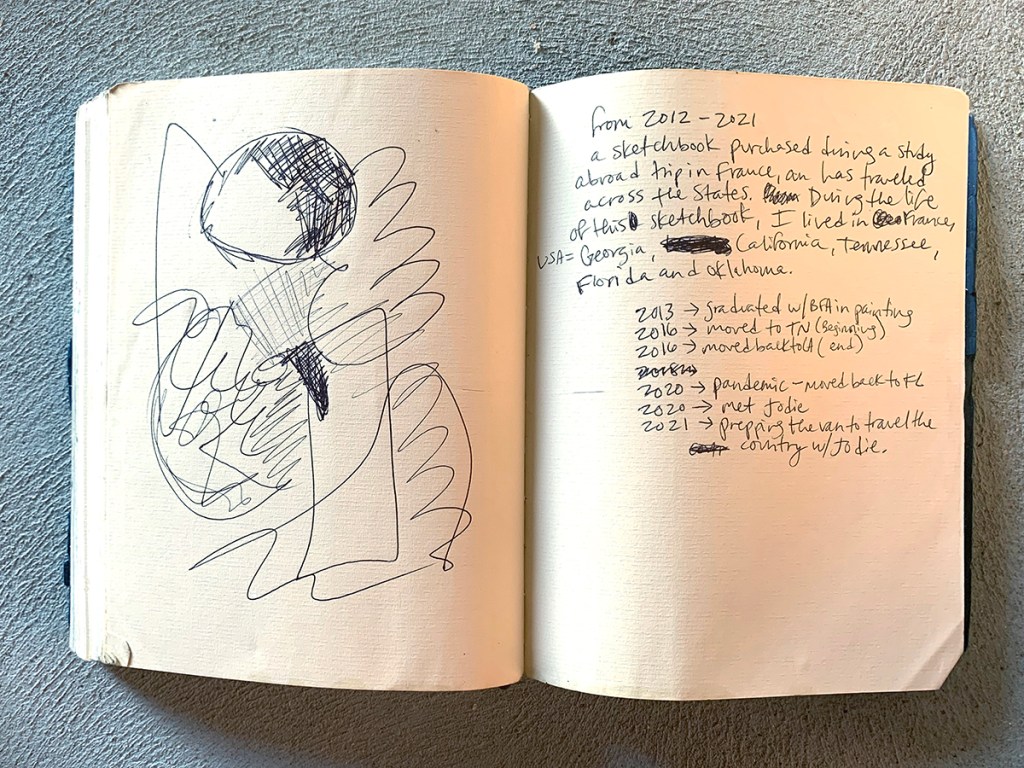 from 2012 - 2021
a sketchbook purchased during a study
abroad trip in France, an has traveled
across the States. During the life
of this sketchbook, I lived in France,
USA = Georgia, California, Tennessee,
Florida and Oklahoma.
2013 → graduated w/ BFA in painting
2016 → moved to TN (beginning)
2016 → moved back to (end)
2020 → pandemic - moved back to FL
2020 → met Jodie
2021 → prepping the van to travel the
country w/ Jodie.